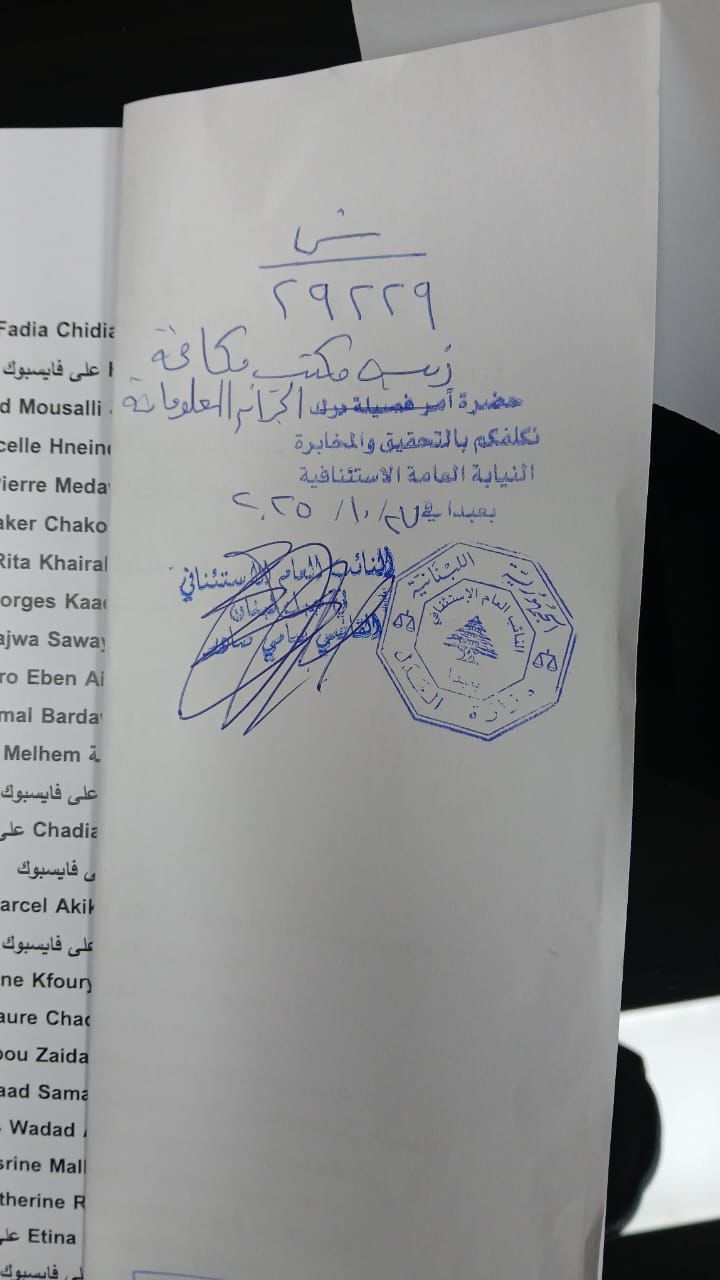 ش
٢٩٢٢٩
رئيس مكتب مكافحة
حضرة آمر فصيلة درك الجرائم المعلوماتية
نكلفكم بالتحقيق والمخابرة
النيابة العامة الاستئنافية
بعبدا في ٢٧/ ١٠/ ٢٠٢٥
النائب العام الاستئنافي
القاضي سامي صادر
الجمهورية اللبنانية
النائب العام الإستئنافي
بعبدا
وزارة العدل
Fadia Chidia
على فايسبوك
d Mousalli
celle Hnein
Pierre Meda
aker Chako
Rita Khairal
orges Kaa
ajwa Saway
ro Eben Ai
mal Barda
Melhem
على فايسبوك
Chadia على
فايسبوك
arcel Akik
على فايسبوك
ne Kfoury
aure Chac
bou Zaida
aad Sama
Wadad
srine Mall
therine R
Etina
على فايسبوك